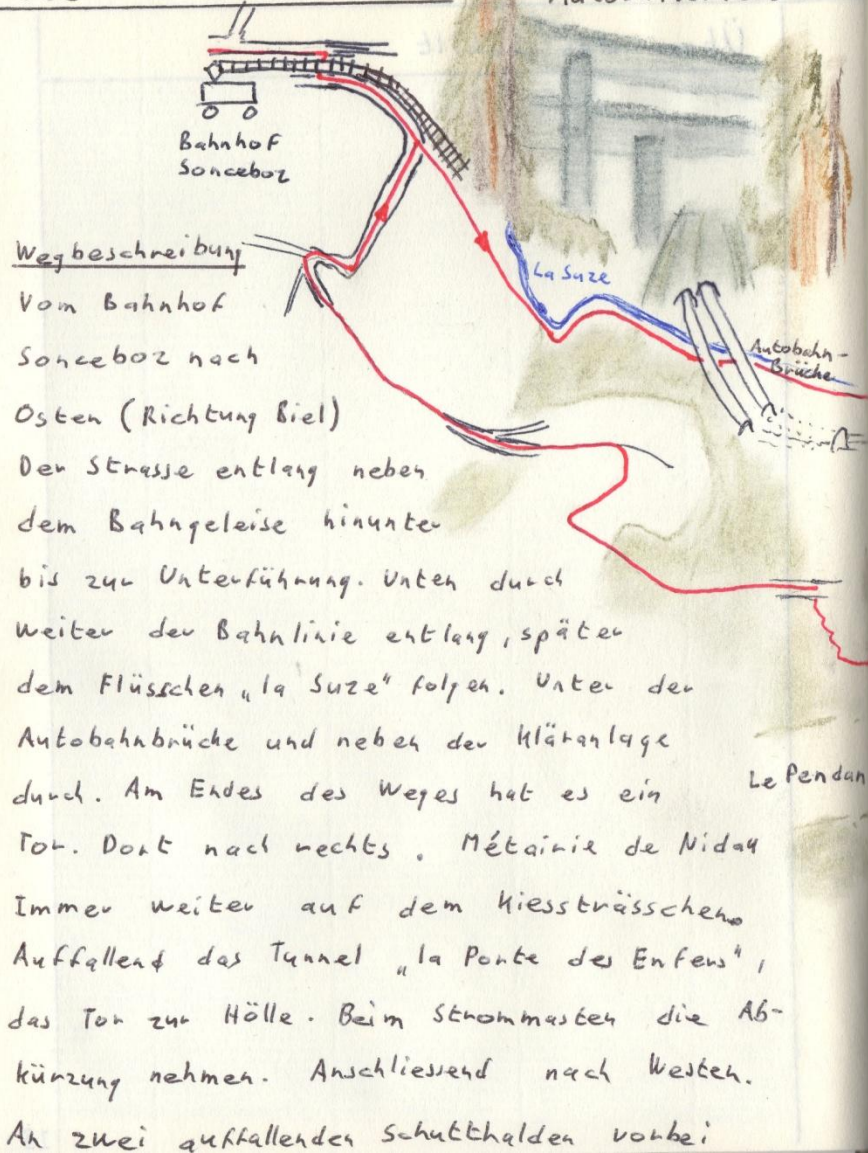 Bahnhof
Sonceboz
La Suze
Autobahn-
Brücke
Wegbeschreibung
Vom Bahnhof
Sonceboz nach
Osten (Richtung Biel)
Der Strasse entlang neben
dem Bahngeleise hinunter
bis zur Unterführung. Unten durch
weiter der Bahnlinie entlang, später
dem Flüsschen „la Suze" folgen. Unter der
Autobahnbrücke und neben der Kläranlage
durch. Am Endes des Weges hat es ein
Tor. Dort nach rechts. Métairie de Nidau
Immer weiter auf dem Kiessträsschen.
Auffallend das Tunnel „la Porte des Enfers",
das Tor zur Hölle. Beim Strommasten die Ab-
kürzung nehmen. Anschliessend nach Westen.
An zwei auffallenden Schutthalden vorbei
Le Pendan